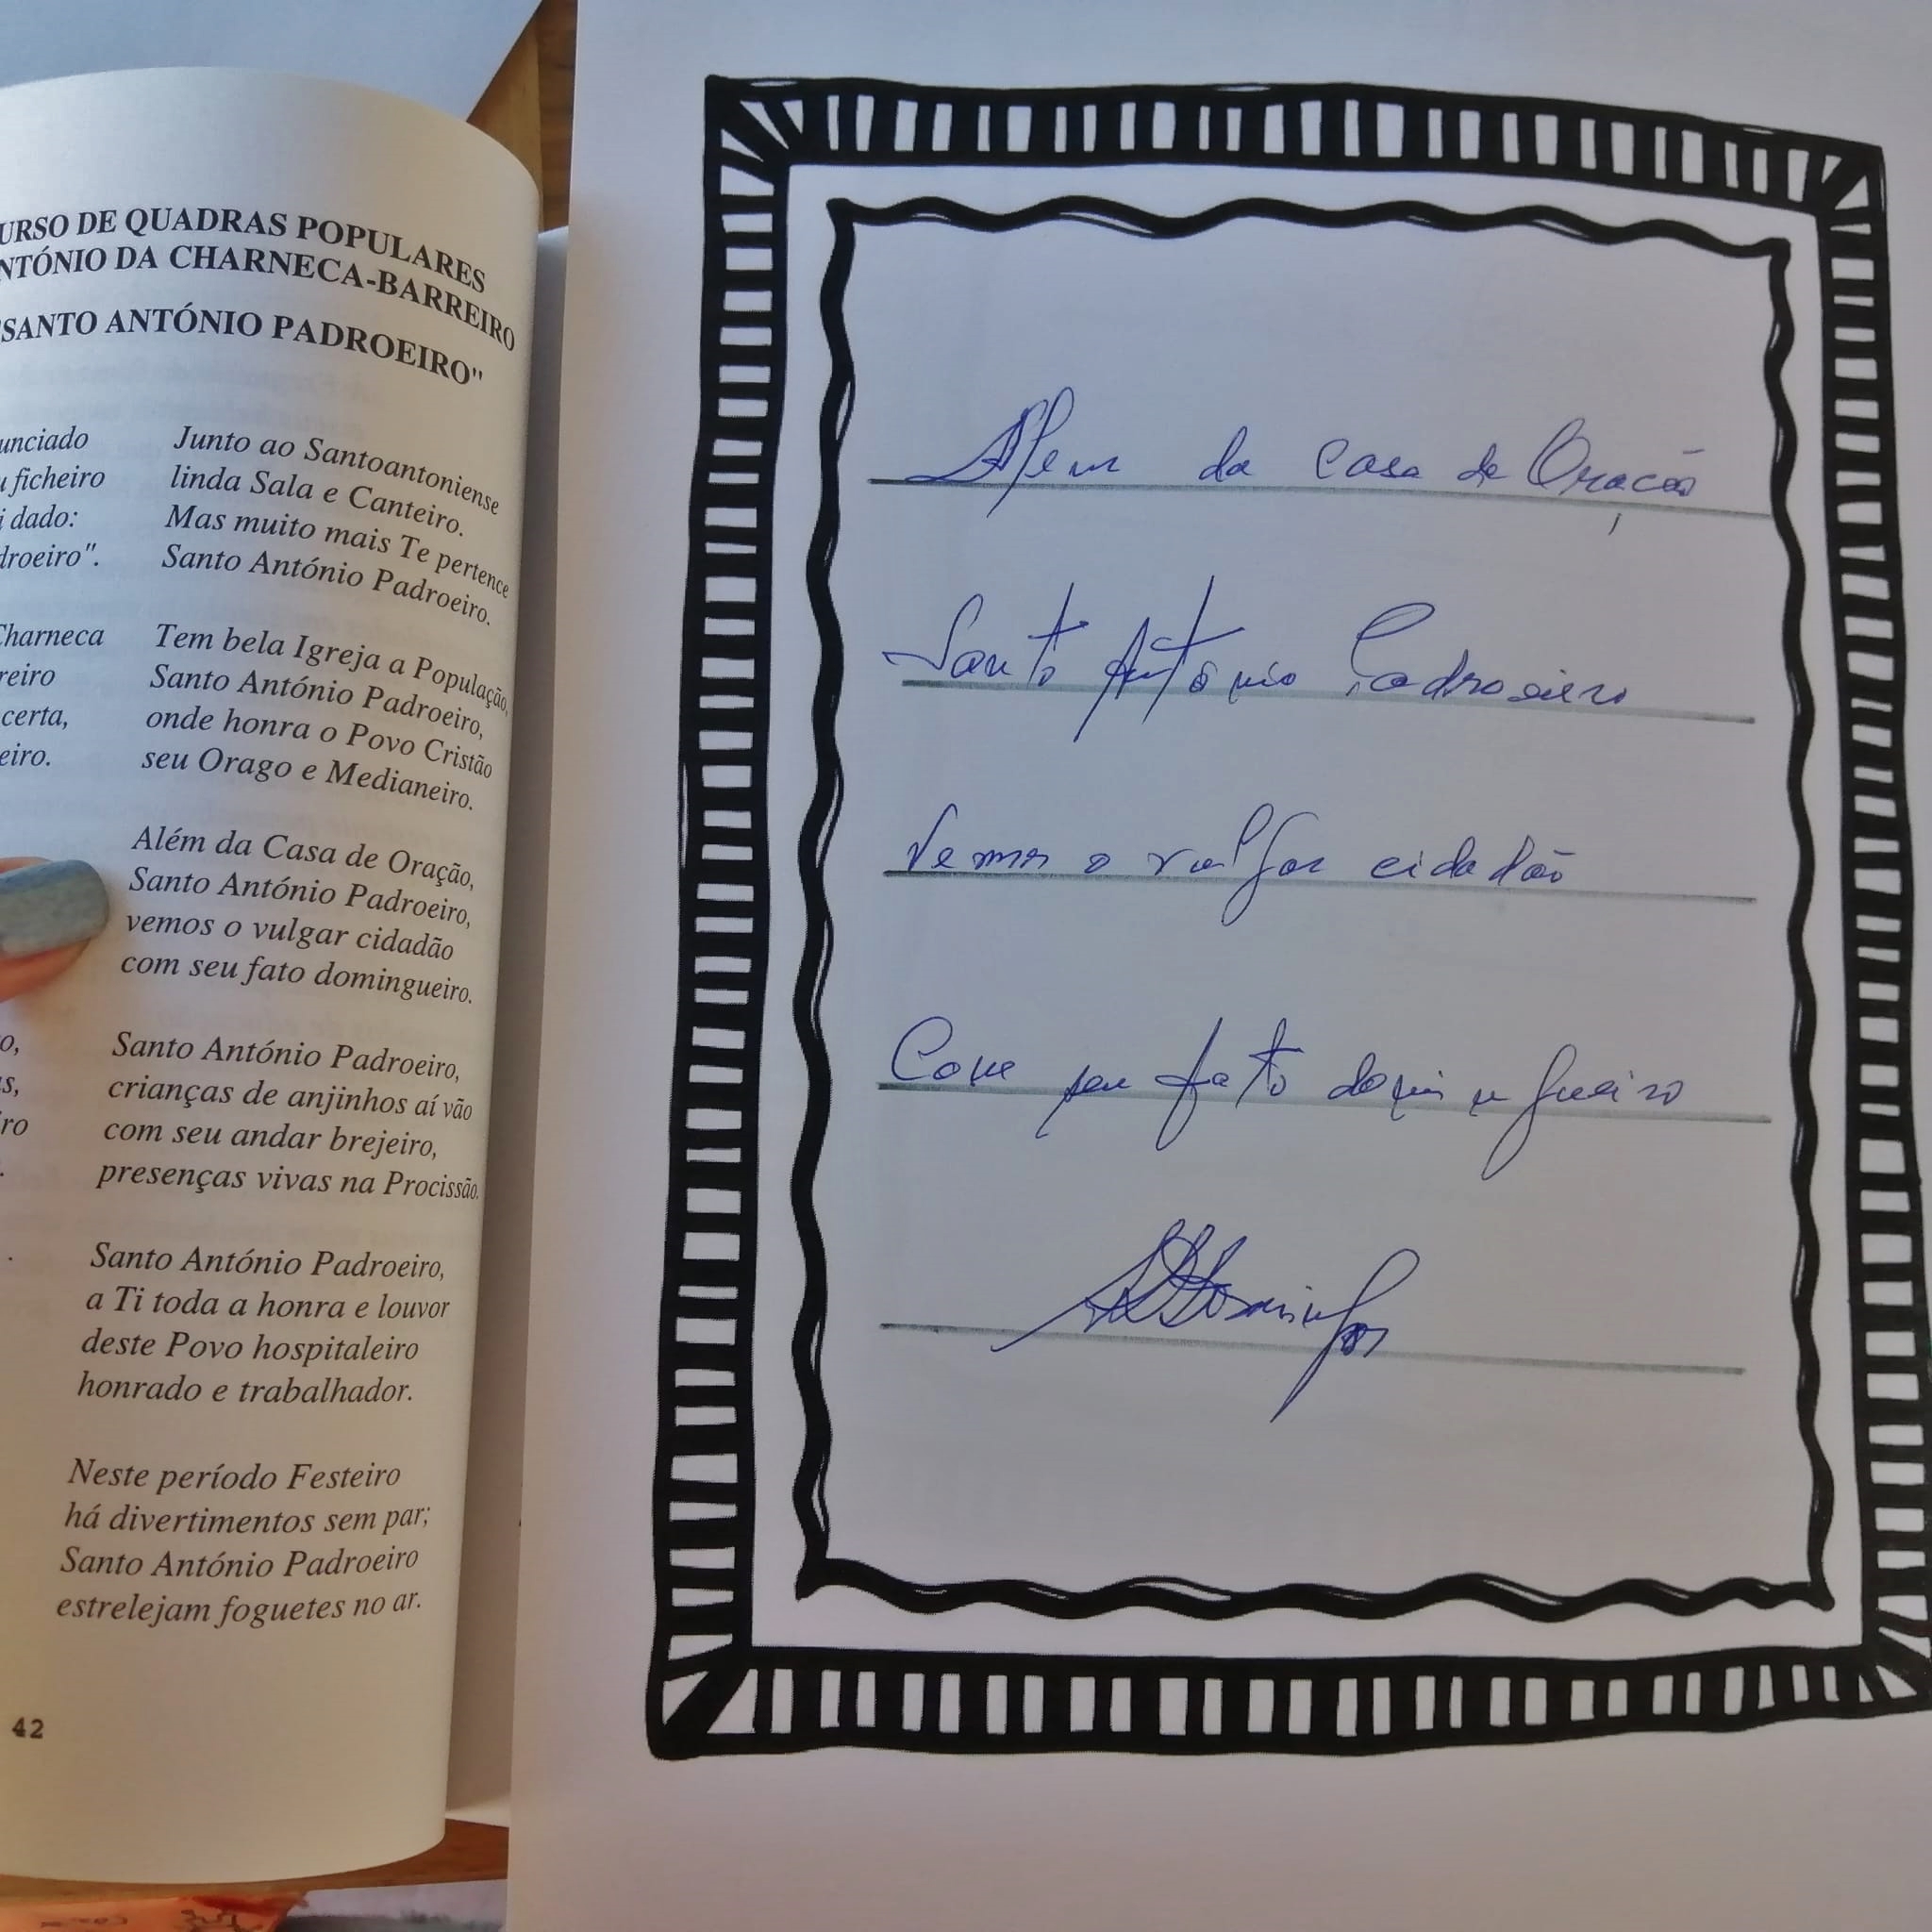 URSO DE QUADRAS POPULARES
NTÓNIO DA CHARNECA-BARREIRO
"SANTO ANTÓNIO PADROEIRO"
unciado
ficheiro
i dado:
droeiro".
Charneca
reiro
certa,
eiro.
o,
s,
ro
Junto ao Santoantoniense
linda Sala e Canteiro.
Mas muito mais Te pertence
Santo António Padroeiro.
Tem bela Igreja a População,
Santo António Padroeiro,
onde honra o Povo Cristão
seu Orago e Medianeiro.
Além da Casa de Oração,
Santo António Padroeiro,
vemos o vulgar cidadão
com seu fato domingueiro.
Santo António Padroeiro,
crianças de anjinhos aí vão
com seu andar brejeiro,
presenças vivas na Procissão.
Santo António Padroeiro,
a Ti toda a honra e louvor
deste Povo hospitaleiro
honrado e trabalhador.
Neste período Festeiro
há divertimentos sem par;
Santo António Padroeiro
estrelejam foguetes no ar.
42
Alem da Casa de Oração
Santo António Padroeiro
Vemos o vulgar cidadão
Com seu fato domingueiro